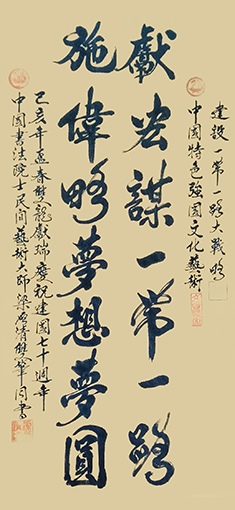 建設一帶一路大戰略
中國特色強國文化藝術
獻宏謀一帶一路
施偉略夢想夢圓
己亥年孟春雙龍獻瑞慶祝建國七十週年
中國書法院士民間藝術大師梁成清雙筆同書